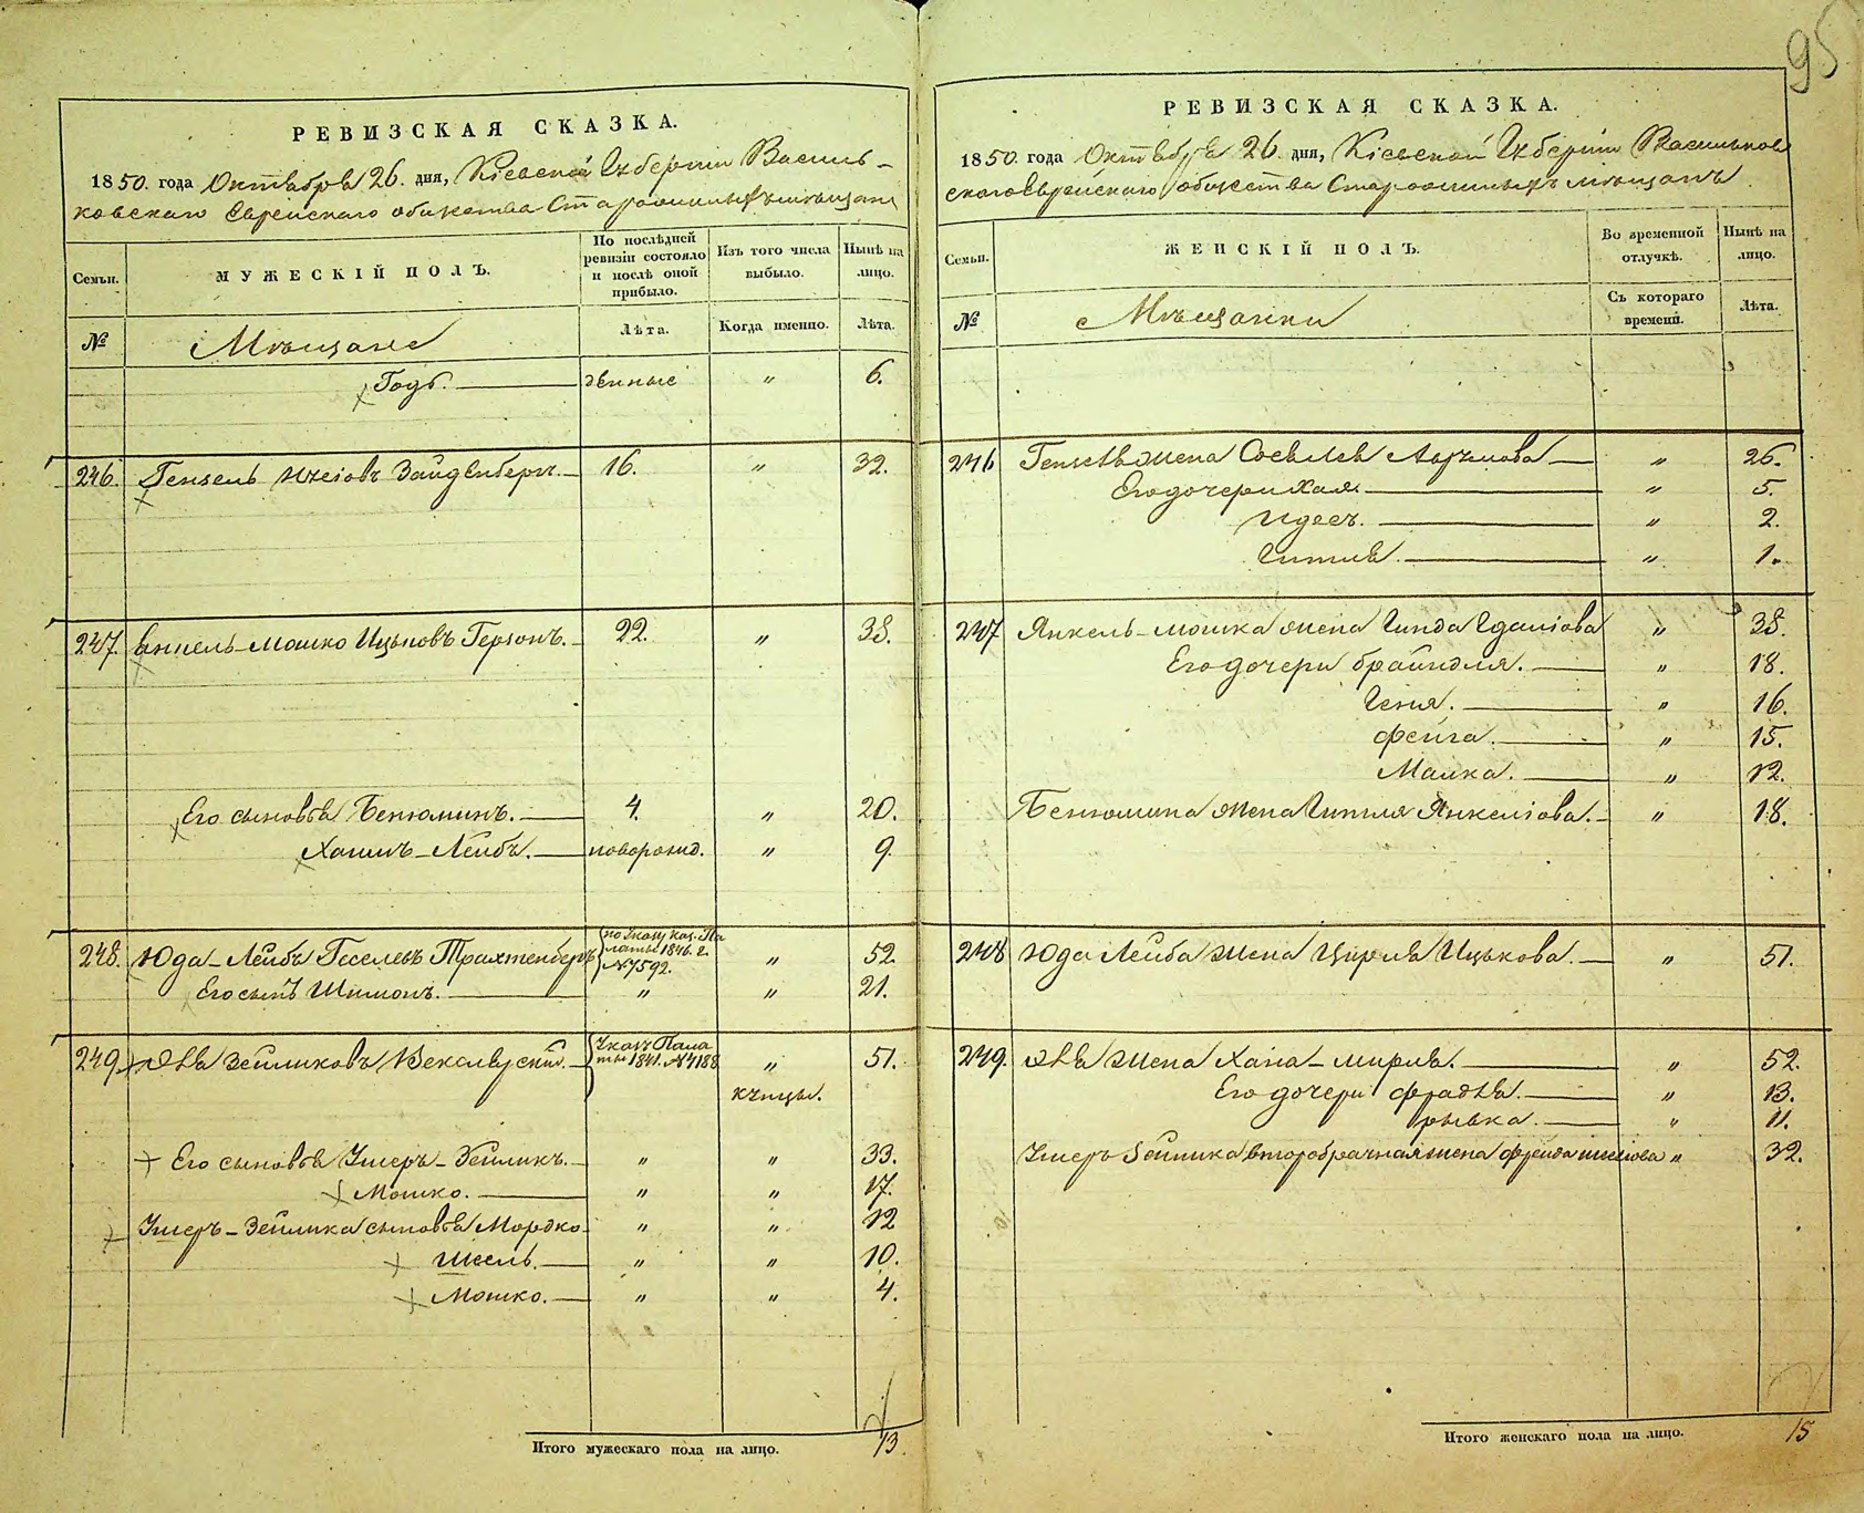 95
РЕВИЗСКАЯ СКАЗКА.
1850. года Октября 26. дня, Кіевской Губерніи Василь-
ковскаго Еврейскаго общества Старожилыхъ мѣщанъ
Семьи. МУЖЕСКІЙ ПОЛЪ. По послѣдней ревизіи состояло и послѣ оной прибыло. Изъ того числа выбыло. Нынѣ на лицо.
№ Мѣщане Лѣта. Когда именно. Лѣта.
„ 6.
246. Гензель Зайденбергъ. 16. „ 32.
247. Янкель-Мошко Ицьковъ Герзонъ. 22. „ 38.
Его сыновья Бенюминъ. 4. „ 20.
Хаимъ-Лейбъ. новорожд. „ 9.
248. Юда-Лейбъ Геселевъ Трахтенбергъ по Указу Каз. Па
латы 1846. г.
№ 7592. „ 52.
Его сынъ Шимонъ. „ „ 21.
249. Зейликовъ Указъ Пала
ты 1841. № 4188 „ 51.
купцы.
Его сыновья Ушеръ-Зейликъ. „ „ 33.
Мошко. „ „ 17.
Ушеръ-Зейлика сыновья Мордко „ „ 12
„ „ 10.
Мошко. „ „ 4.
Итого мужескаго пола на лицо. 13.
РЕВИЗСКАЯ СКАЗКА.
1850. года Октября 26. дня, Кіевской Губерніи Васильков
скаго Еврейскаго общества Старожилыхъ мѣщанъ
Семьи. ЖЕНСКІЙ ПОЛЪ. Во временной отлучкѣ. Нынѣ на лицо.
№ Мѣщанки Съ котораго времени. Лѣта.
246 Гензеля жена „ 26.
Его дочери Хая. „ 5.
Идесъ. „ 2.
Гитля. „ 1.
247 Янкель-Мошка жена Гинда Гдаліова „ 38.
Его дочери Брайндля. „ 18.
Геня. „ 16.
Фейга. „ 15.
Малка. „ 12.
Бенюмина жена Гитля Янкеліова. „ 18.
248 Юда Лейба жена Цирля Ицькова. „ 51.
249. жена Хана-Мирля. „ 52.
Его дочери Фрадля. „ 13.
Рывка. „ 11.
Ушеръ Зейлика второбрачная жена Фрейда „ 32.
Итого женскаго пола на лицо. 15